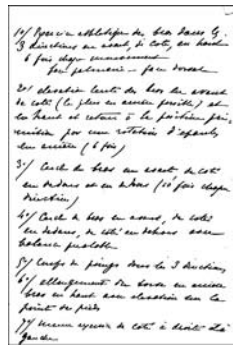 1º/ Exercice athlétique des bras dans les
3 directions en avant, de côté, en haut
6 fois chaque mouvement
face palmaire – face dorsale
2º/ élévation lente des bras en avant
de côté (le plus en arrière possible) et
en haut et retour à la position
par une rotation d'épaules
en arrière (6 fois)
3º/ Cercle de bras en avant, de côté
en dedans et en dehors (10 fois chaque
direction)
4º/ Cercle de bras en avant, de côté
en dedans, de côté en dehors avec
5º/ Coups de poings dans les 3 directions
6º/ allongement du torse en arrière
bras en haut avec élévation sur la
pointe des pieds
7º/ même exercice de côté à droite et à
gauche